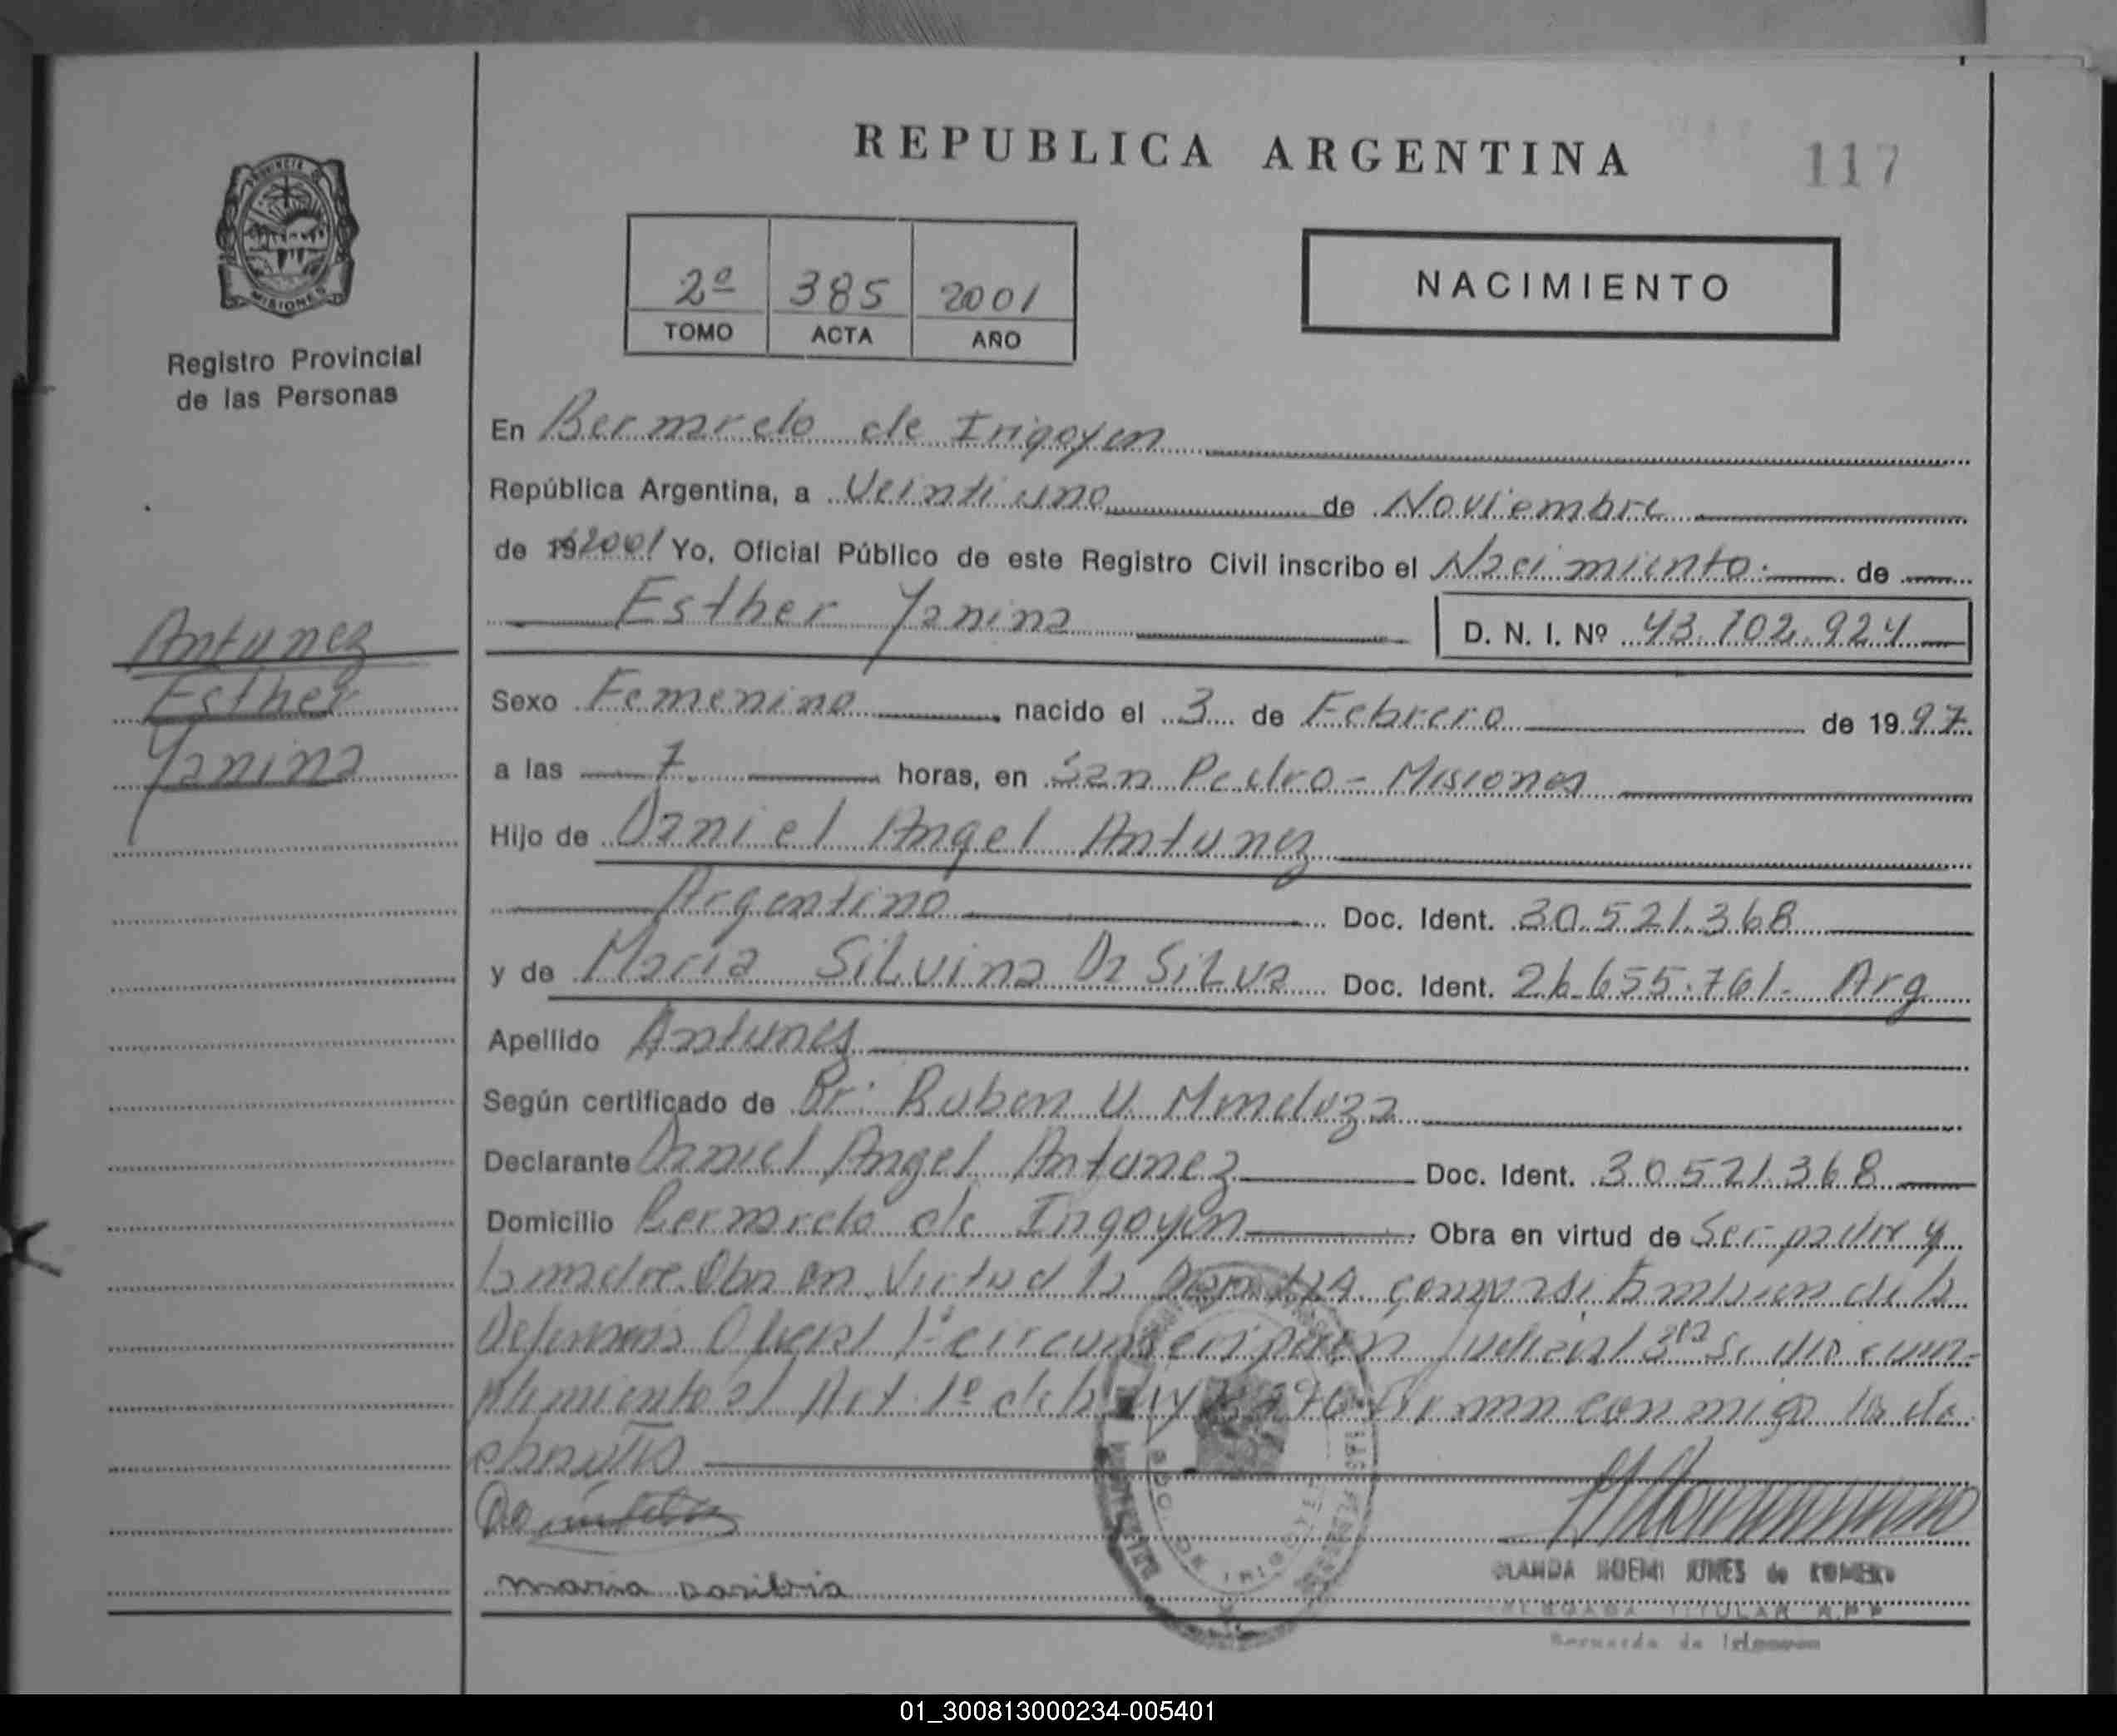 REPUBLICA ARGENTINA
117
PROVINCIA D
MISIONES
Registro Provincial
de las Personas
2º 385 2001
TOMO ACTA AÑO
NACIMIENTO
En Bernardo de Irigoyen
República Argentina, a Veintiuno de Noviembre
de 19 2001 Yo, Oficial Público de este Registro Civil inscribo el Nacimiento de
Esther Yanina D. N. I. Nº 43.702.924
Antunez
Esther
Yanina
Sexo Femenino nacido el 3 de Febrero de 1997
a las 7 horas, en San Pedro - Misiones
Hijo de Daniel Angel Antunez
Argentino Doc. Ident. 30.521.368
y de Maria Silvina Da Silva Doc. Ident. 26.655.761- Arg
Apellido Antunes
Según certificado de Dr: Ruben U Mendoza
Declarante Daniel Angel Antunez Doc. Ident. 30521368
Domicilio Bernardo de Irigoyen Obra en virtud de Ser padre y
la madre. Obra en virtud la
Oficial 1º circunscripcion Judicial 3ra Se dio cum-
plimiento al Art 1º de la ley Firman con migo los de
clarantes
maria
NOEMI de ROMERO
TITULAR R.P.P
Bernardo de Irigoyen
01_300813000234-005401